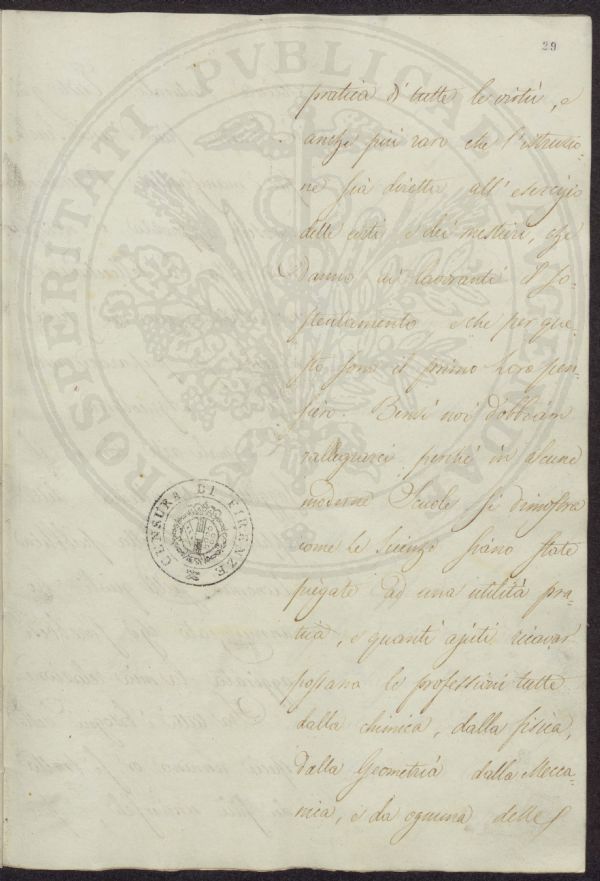 29
pratica di tutte le virtù, e
anche più raro che l'istruzio-
ne sia diretta all' esercizio
delle arti e dei mestieri, che
danno ai lavoranti il so-
stentamento, e che per que-
sto sono il primo loro pen-
siero. Bensì noi dobbiam
rallegrarci perchè in alcune
moderne Scuole si dimostra
come le Scienze siano state
piegate ad una utilità pra-
tica, e quanti ajuti ricavar
possano le professioni tutte
dalla chimica, dalla fisica,
dalla Geometria dalla Mecca-
nica, e da ognuna delle
CENSURA DI FIRENZE
PROSPERITATI PVBLICAE AVGENDAE